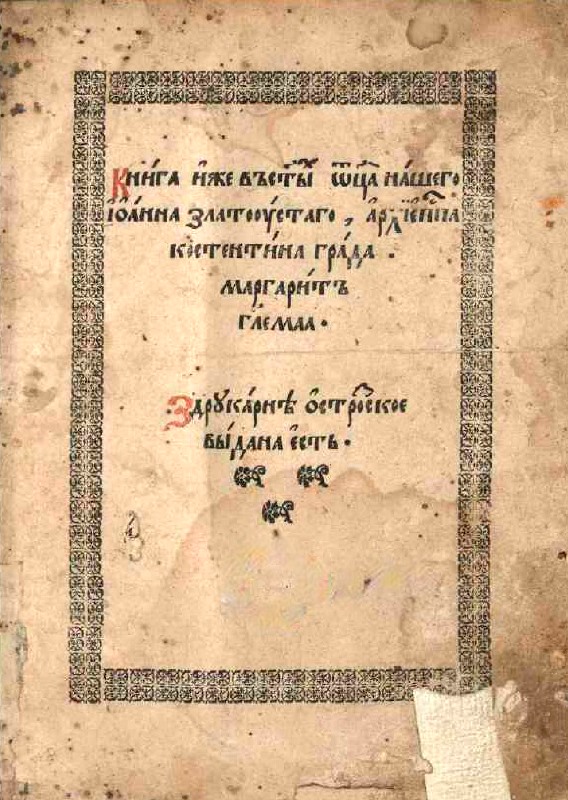 Кни́га и҆́же въ ст҃ы́ ѿц҃а на́шего
і҆ѡа́нна златоꙋ́стаго, а҆рхїеп҃па
костенти́на гра́да.
маргари́тъ
гл҃емаа.
З друка́рнѣ о҆стро́ское
вы́дана е҆́стъ.